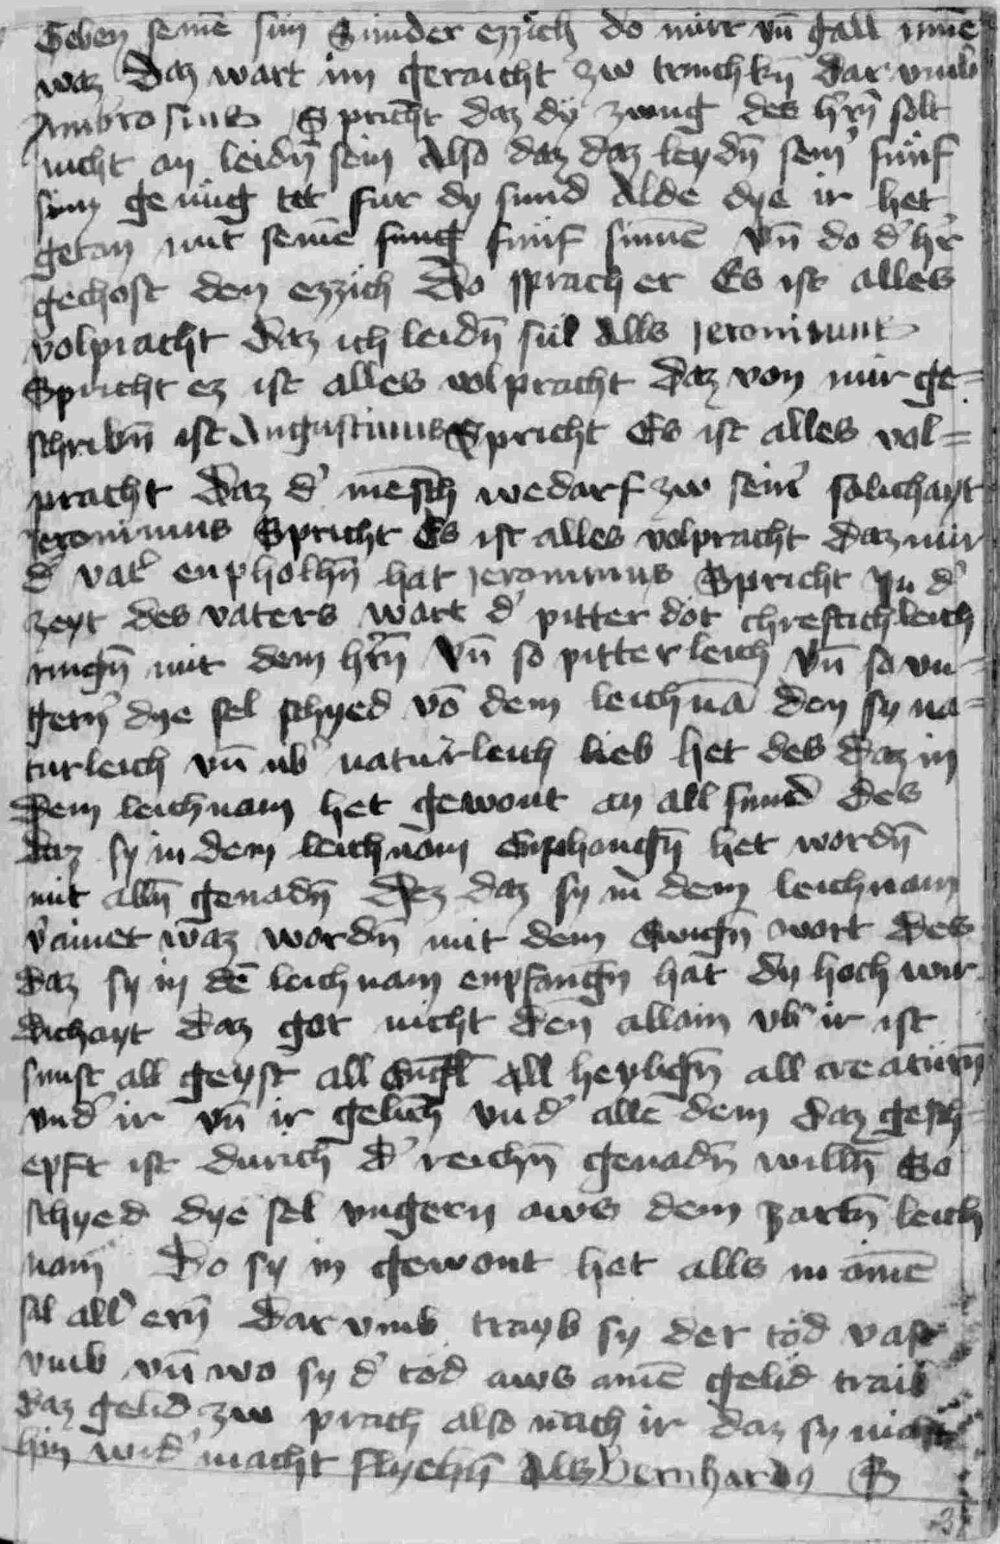 Geben seinē sun Sunder ezzich do mirr vn̄ gall inne
waz Daz wart im geraicht zw trinckn̄ Dar vmb
Ambrosius Spricht daz dy zung des hrn̄ solt
nicht an leidn̄ sein Also daz daz leydn̄ sein' fünf
sinn genüg tet fur dy sund Alde dye ir het
getan mit seinē fung fünf sinnē Vn̄ do d' h'r
gechost den ezzich Do sprach er Es ist alles
volpracht Daz ich leidn̄ sül Alls Jeronimus
Spricht ez ist alles volpracht Daz von mir ge=
schribn̄ ist Augustinus Spricht Es ist alles vol=
pracht Daz d' mensch wedarf zw sein' salichayt
Jeronimus Spricht Es ist alles volpracht Daz mir
d' vat' enpholhn̄ hat Jeronimus Spricht Jn d'
zeyt des vaters wart d' pitter dot chrefticleich
ringn̄ mit dem hrn̄ Vn̄ so pitterleich vn̄ so vn=
gern' dye sel schyed vō dem leichnā den sy na=
turleich vn̄ vb' naturleich lieb het des Daz in
Dem leichnam het gewont an all sund Des
Daz sy in dem leichnam Enphangn̄ het wordn̄
mit alln̄ genadn̄ Dez daz sy in dem leichnam
v'ainet waz wordn̄ mit dem Ewign̄ wort Des
daz sy in dē leichnam enpfangn̄ hat Dy hoch wir
dichayt Daz got nicht den allain vb' ir ist
sunst all geyst all Engl All heylign̄ all creaturn̄
vnd' ir vn̄ ir gelich vnd' allē dem Daz gesch=
epft ist durich d' reichn̄ genadn̄ willn̄ So
schyed dye sel vngern aws dem zartn̄ leich
nam Do sy in gewont het alls in ainē
sal all' ern̄ Dar vmb trayb sy der tod vast
vmb vn̄ wo sy d' tod aws ainē gelid traib
Daz gelid zw prach also nach ir daz sy nicht
hin wid' macht flyehn̄ Alz Bernhardus S